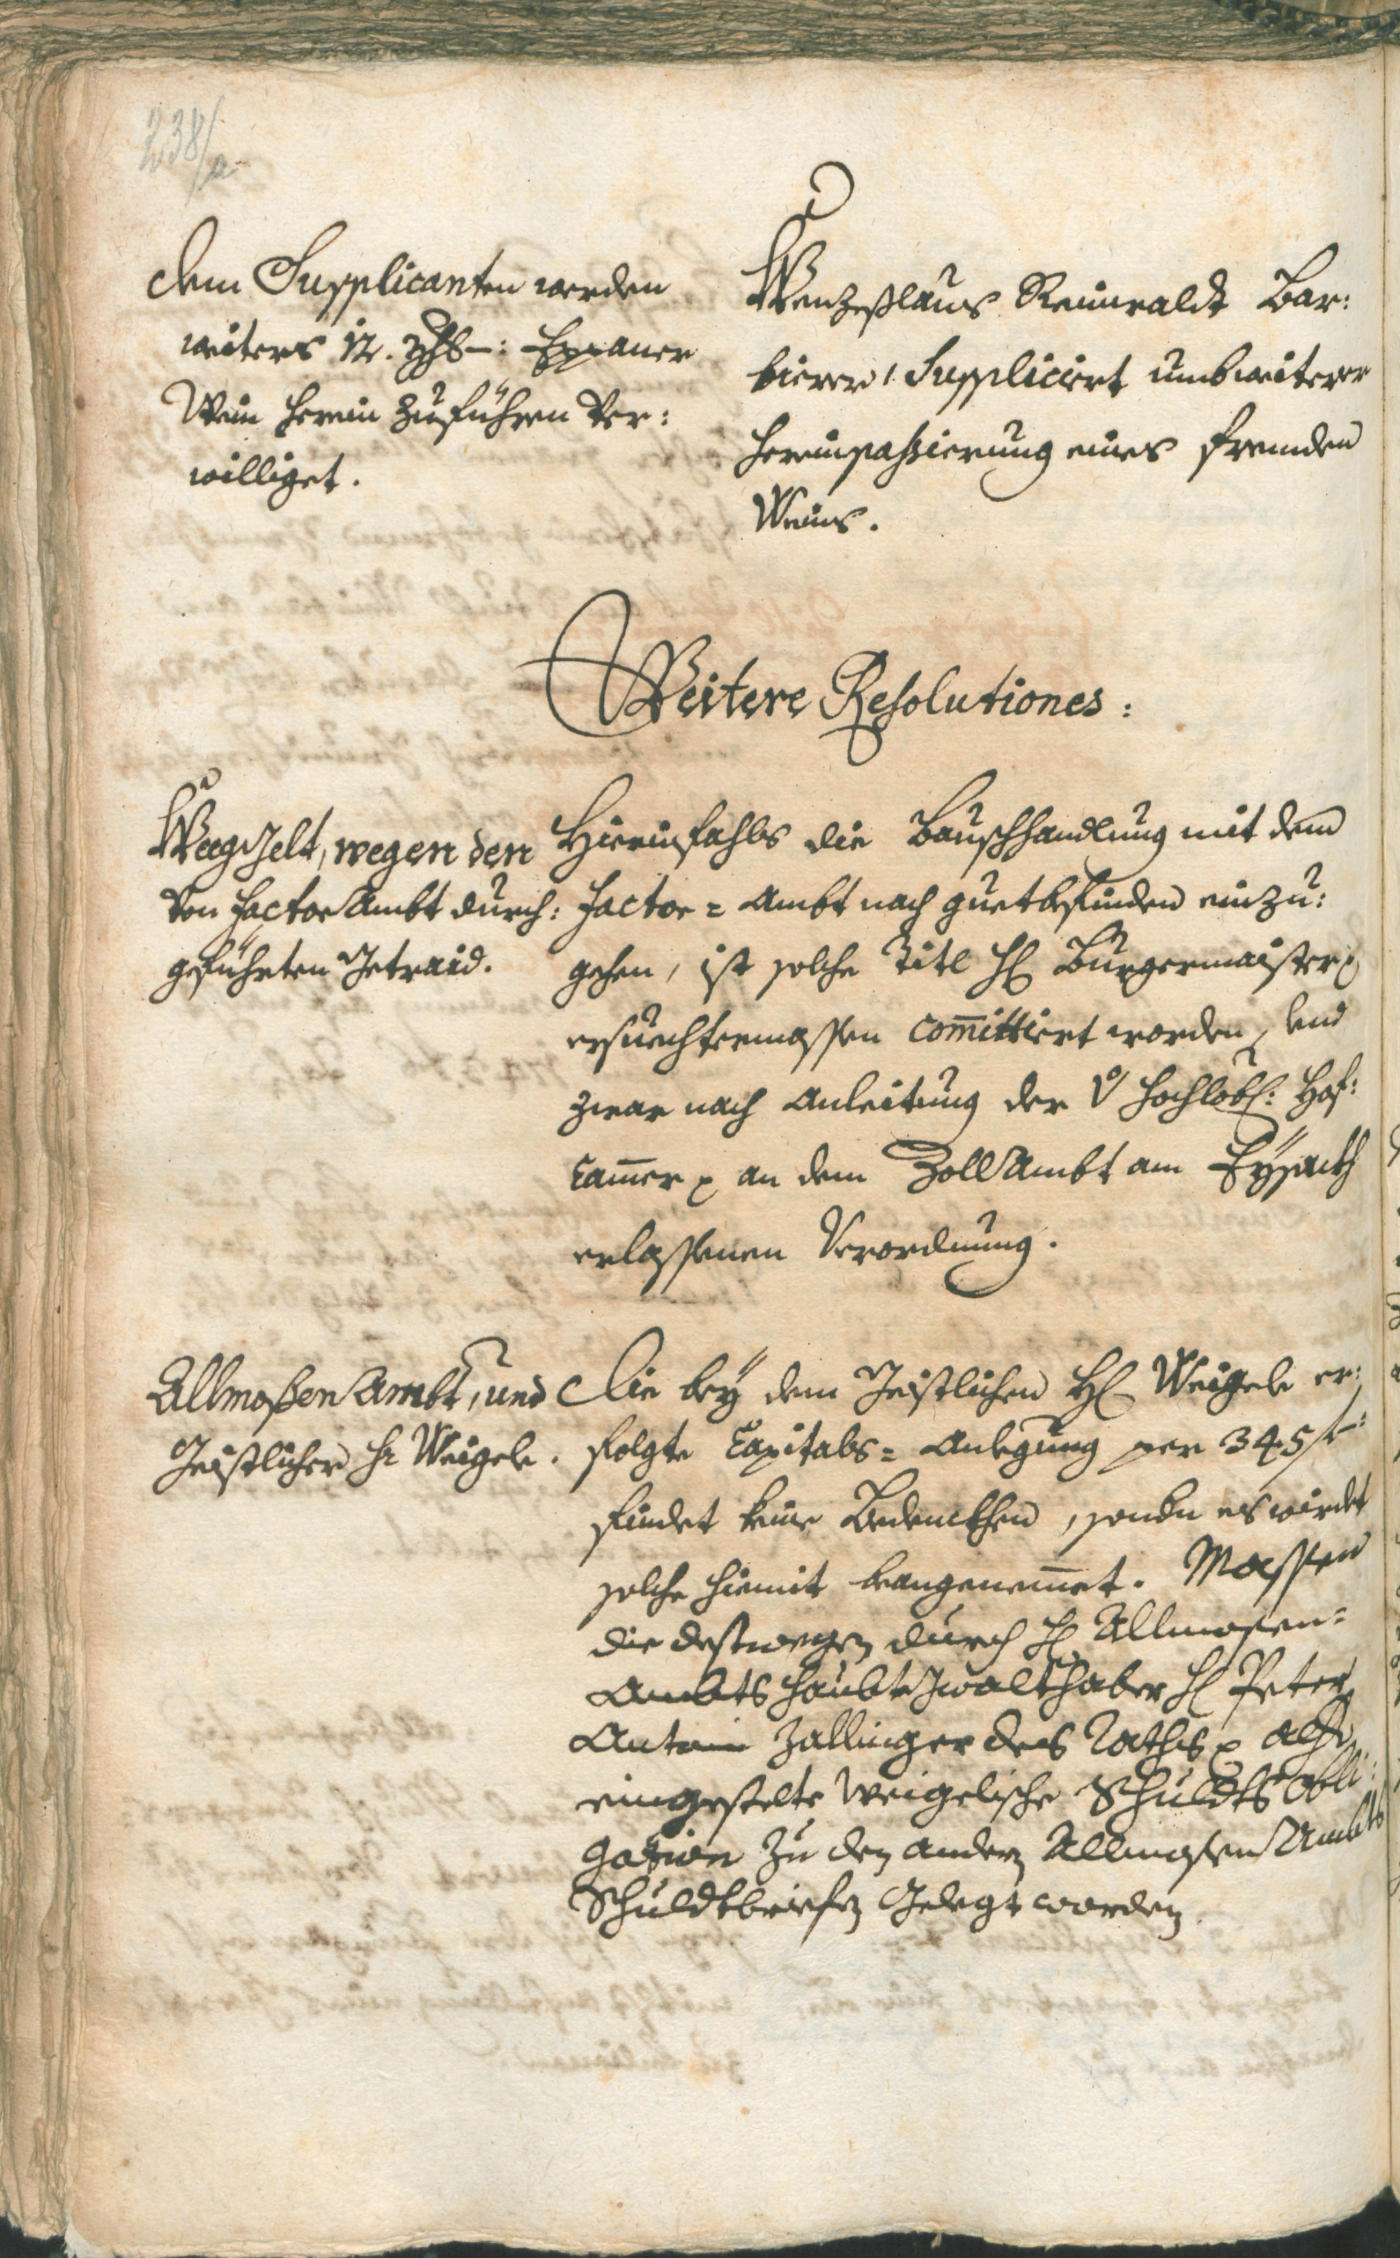 238/a
Dem Supplicanten werden
weiters 12. Yhs-: Eppaner
Wein herein zuführen ver:
williget.
Wenzeßlaus Reinwaldt Bar:
bierer, Suppliciert umb weiterer
hereinpassierung eines frembden
Weins.
Weitere Resolutiones:
Weeg Gelt, wegen den
von Factor Ambt durch:
geführten Getraid.
Hierinfahls die Bauschhandlung mit dem
Factor= Ambt nach guetbefinden einzu:
gehen, ist solche Titl H. Burgermaister
ersuechtermassen committiert worden, und
zwar nach Anleitung der V. Ö. Hochlöbl: Hof:
Cammer an dem Zoll Ambt am Eysackh
erlassenen Verordnung.
Allmoßen Ambt, und
Geistlicher Hr Weigele.
Die bey dem Geistlichen H. Weigele er:
folgte Capitals= Anlegung per 345 f:
findet keine Bedenckhen, sondern es wirdet
solche hiemit beangenemmet. Massen
die desstwegen durch H. Allmosen=
Ambts haubt Gwalthaber H. Peter
Antoni Zallinger des Raths alhier
eingestelte Weigelische Schuldts Obli:
gation zu den andern Allmosen Ambts
Schuldtbriefen Gelegt worden